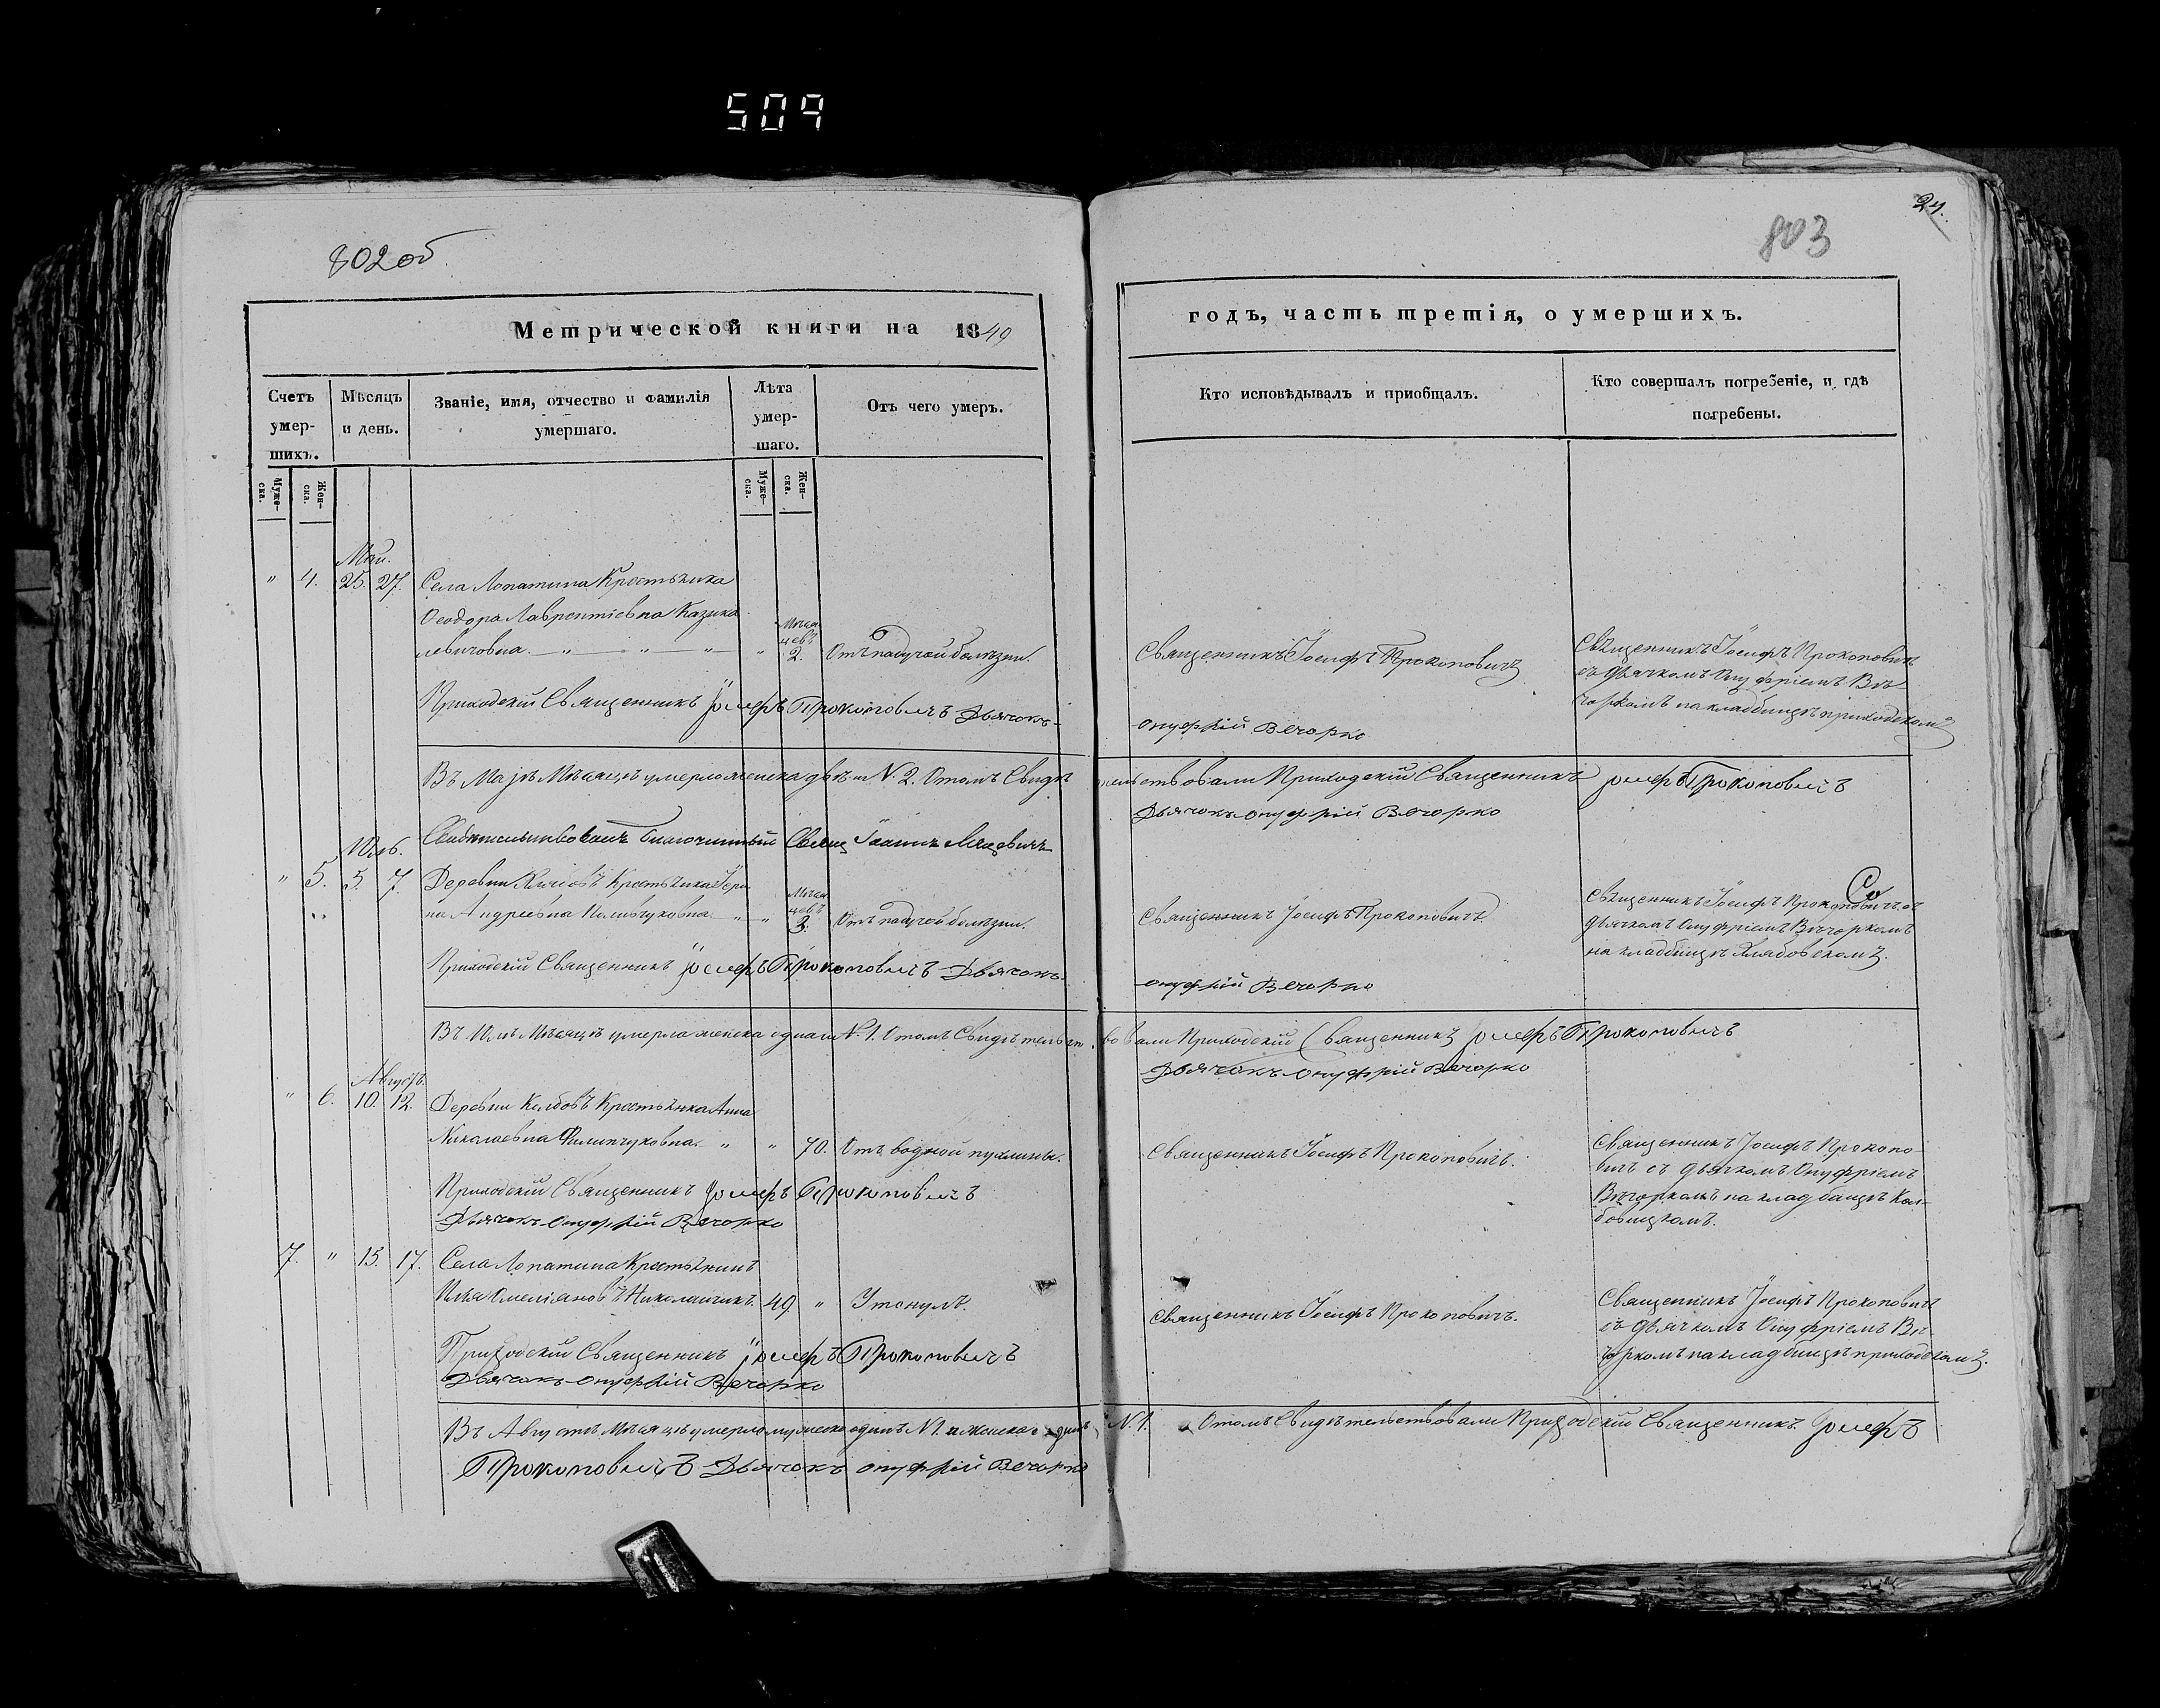 509
802 об
803
24.
Метрической книги на 1849
годъ, часть третія, о умершихъ.
Счетъ умер-шихъ.
Мѣсяцъ и день.
Званіе, имя, отчество и фамилія умершаго.
Лѣта умер-шаго.
Отъ чего умеръ.
Кто исповѣдывалъ и пріобщалъ.
Кто совершалъ погребеніе, и гдѣ погребены.
Муже-ска.
Жен-ска.
Муже-ска.
Жен-ска.
Май.
" 4. 25. 27. Села Лопатина Крестьянка
Ѳеодора Лаврентіевна Казико
левичовна. " " " Мѣсяцевъ 2. Отъ падучой болѣзни.
Священникъ Іосифъ Прокоповичъ
Священникъ Іосифъ Прокоповичъ
съ дьячкомъ Онуфріемъ Вѣ
чоркомъ на кладбищѣ приходскомъ
Приходскій Священникъ Іосифъ Прокоповичъ Дьячокъ
Онуфрій Вечорко
Въ Маѣ Мѣсяцѣ умерло женска двѣ N. 2. О томъ Свидѣтельствовали Приходскій Священникъ Іосифъ Прокоповичъ
Дьячокъ Онуфрій Вечорко
Свидѣтельствовалъ Благочинный Свящ Іоаннъ
Іюль.
" 5. 5. 7. Деревни Крестьянка
на Андреевна Полѣчуковна " " Мѣсяцевъ 3. Отъ падучой болѣзни.
Священникъ Іосифъ Прокоповичъ.
Священникъ Іосифъ Прокоповичъ съ
дьячкомъ Онуфріемъ Вѣчоркомъ
на кладбищѣ Хлябовскомъ.
Приходскій Священникъ Іосифъ Прокоповичъ Дьячокъ
Онуфрій Вечорко
Въ Іюлѣ Мѣсяцѣ умерла женска одна N. 1. О томъ Свидѣтельствовали Приходскій Священникъ Іосифъ Прокоповичъ
Дьячокъ Онуфрій Вечорко
Августъ.
" 6. 10. 12. Деревни Колбовъ Крестьянка Анна
Николаевна Филипчуковна. " " 70. Отъ водной пухлины.
Священникъ Іосифъ Прокоповичъ.
Священникъ Іосифъ Прокопо-
вичъ съ дьячкомъ Онуфріемъ
Вѣчоркомъ на кладбищѣ Кол-
бовицкомъ.
Приходскій Священникъ Іосифъ Прокоповичъ
Дьячокъ Онуфрій Вечорко
7. " 15. 17. Села Лопатина Крестьянинъ
Илья Омеліановъ Николайчикъ. 49 " Утонулъ.
Священникъ Іосифъ Прокоповичъ.
Священникъ Іосифъ Прокоповичъ
съ дьячкомъ Онуфріемъ Вѣ
чоркомъ на кладбищѣ приходскомъ.
Приходскій Священникъ Іосифъ Прокоповичъ
Дьячокъ Онуфрій Вечорко
Въ Августѣ Мѣсяцѣ умерло мужеска одинъ N 1. и женска одинъ N. 1. О томъ Свидѣтельствовали Приходскій Священникъ. Іосифъ
Прокоповичъ Дьячокъ Онуфрій Вечорко